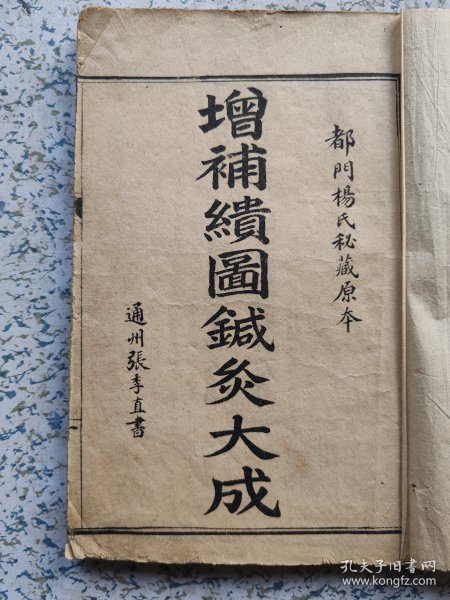 都門楊氏秘藏原本
增補繢圖鍼灸大成
通州張季直書
孔夫子旧书网
www.kongfz.com